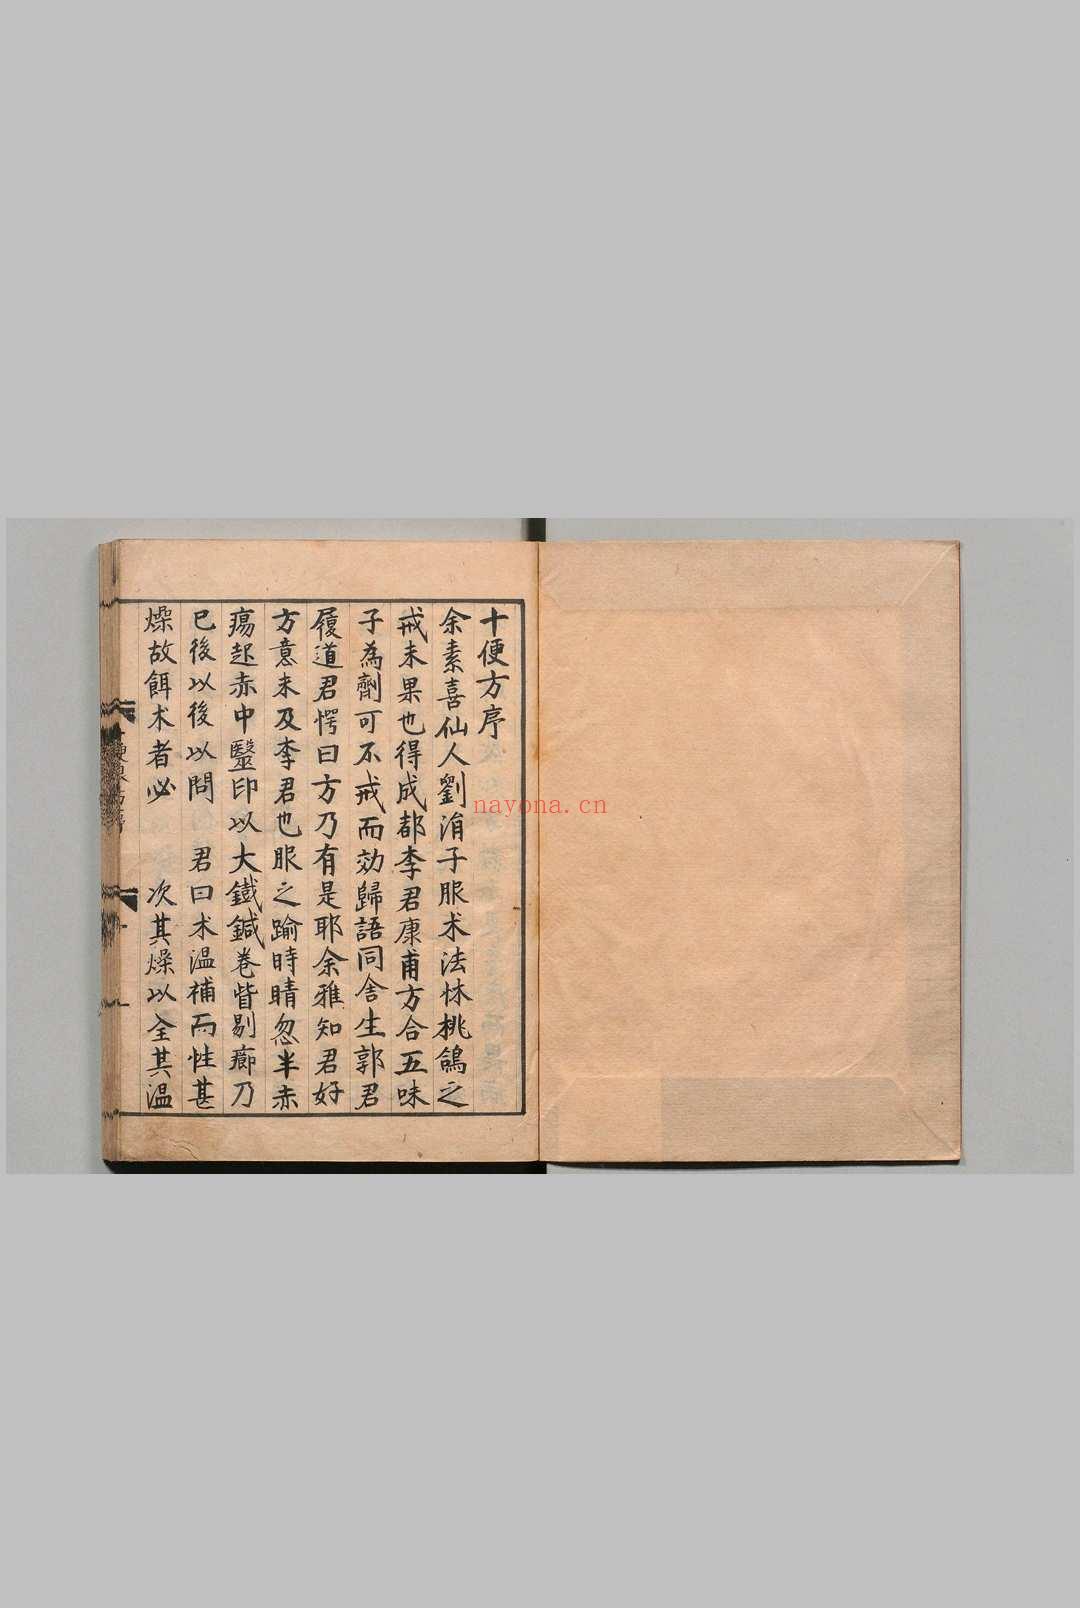 十便方序
余素喜仙人劉涓子服术法怵桃鴿之
戒未果也得成都李君康甫方合五味
子為劑可不戒而効歸語同舍生郭君
履道君愕曰方乃有是耶余雅知君好
方意未及李君也服之踰時睛忽半赤
瘍起赤中醫印以大鐵鍼卷眥剔癤乃
已後以後以問 君曰术温補而性甚
燥故餌术者必 次其燥以全其温
nayona.cn